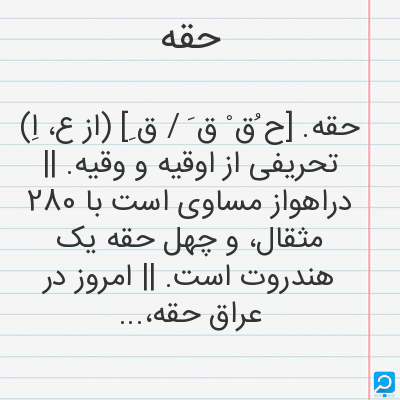 حقه
حقه. [ح ُق ْ ق َ / ق ِ] (از ع، اِ)
تحریفی از اوقیه و وقیه. ||
دراهواز مساوی است با ۲۸۰
مثقال، و چهل حقه یک
هندروت است. || امروز در
عراق حقه،...